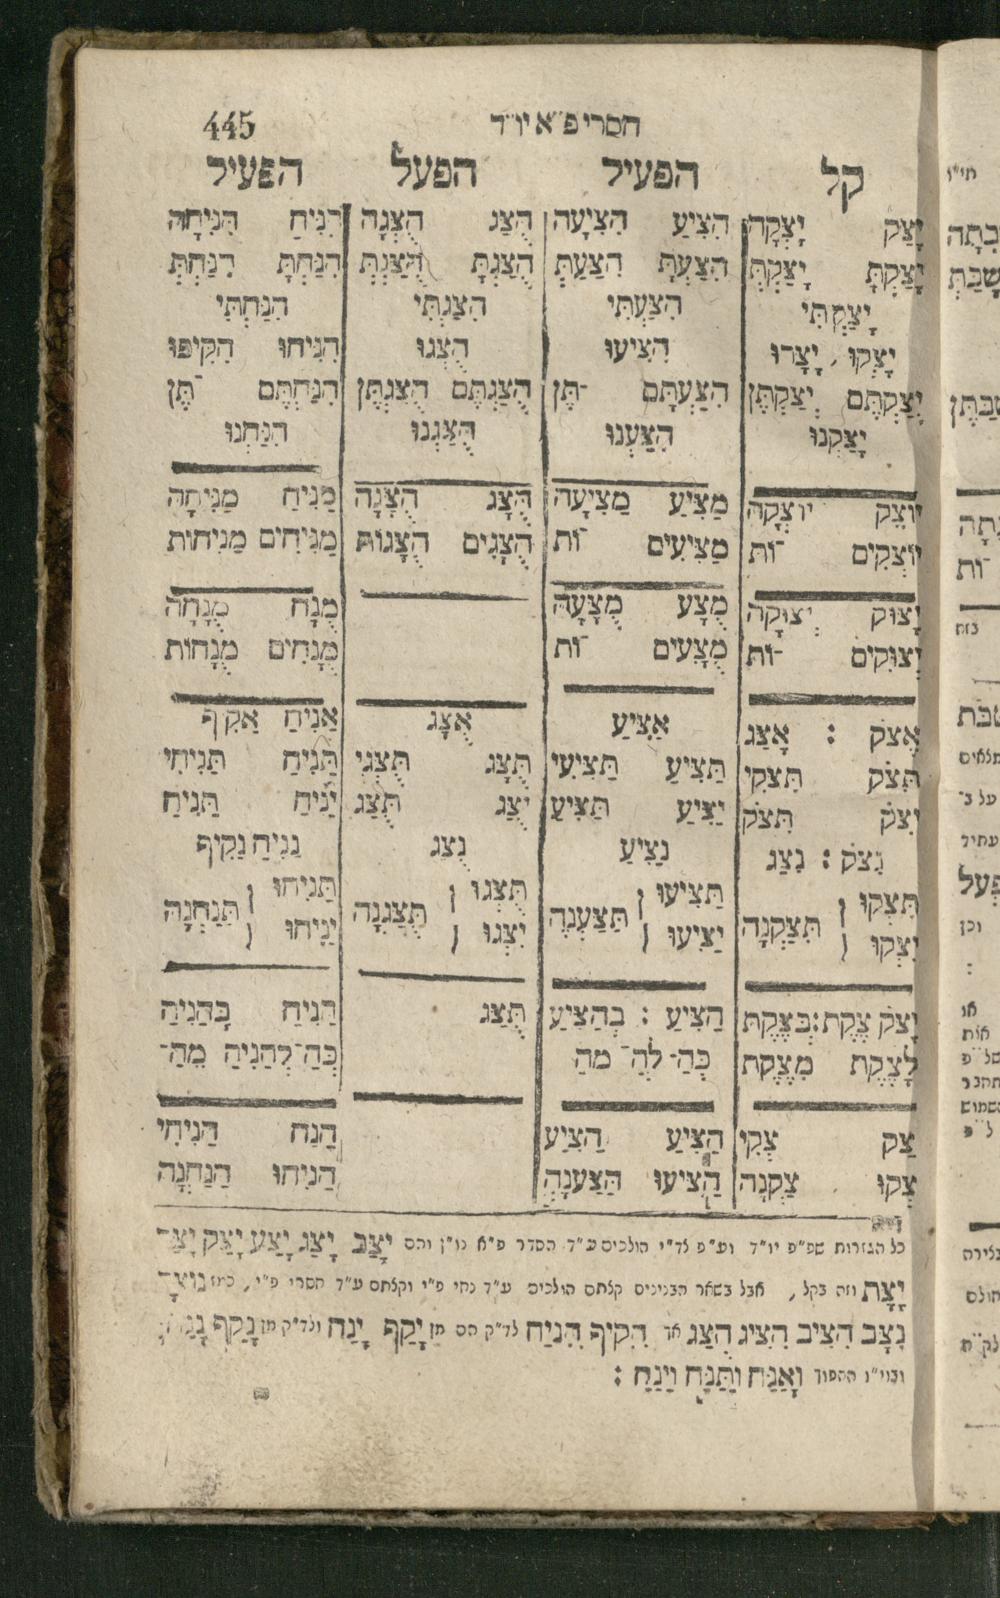 445 חסרי פ״א יו״ד
קל הפעיל הפעל הפעיל
יָצַק יָצְקָה הִצִּיעַ הִצִּיעָה הֻצַּג הֻצְּגָה הִנִּיחַ הִנִּיחָה
יָצַקְתָּ יָצַקְתְּ הִצַּעְתָּ הִצַּעַתְּ הֻצַּגְתָּ הֻצַּגְתְּ הִנַּחְתָּ הִנַּחַתְּ
יָצַקְתִּי הִצַּעְתִּי הֻצַּגְתִּי הִנַּחְתִּי
יָצְקוּ, יָצְרוּ הִצִּיעוּ הֻצְּגוּ הִנִּיחוּ הִקִּיפוּ
יְצַקְתֶּם יְצַקְתֶּן הִצַּעְתֶּם -תֶּן הֻצַּגְתֶּם הֻצַּגְתֶּן הִנַּחְתֶּם -תֶּן
יָצַקְנוּ הִצַּעְנוּ הֻצַּגְנוּ הִנַּחְנוּ
יוֹצֵק יוֹצְקָה מַצִּיעַ מַצִּיעָה הֻצָּג הֻצָּגָה מַנִּיחַ מַנִּיחָה
יוֹצְקִים -וֹת מַצִּיעִים -וֹת הֻצָּגִים הֻצָּגוֹת מַנִּיחִים מַנִּיחוֹת
יָצוּק יְצוּקָה מֻצָּע מֻצָּעָה מֻנָּח מֻנָּחָה
יְצוּקִים -וֹת מֻצָּעִים -וֹת מֻנָּחִים מֻנָּחוֹת
אֶצֹּק : אֶצַּג אַצִּיעַ אֻצַּג אַנִּיחַ אַקִּיף
תִּצֹּק תִּצְּקִי תַּצִּיעַ תַּצִּיעִי תֻּצַּג תֻּצְּגִי תַּנִּיחַ תַּנִּיחִי
יִצֹּק תִּצֹּק יַצִּיעַ תַּצִּיעַ יֻצַּג תֻּצַּג יַנִּיחַ תַּנִּיחַ
נִצֹּק : נִצַּג נַצִּיעַ נֻצַּג נַנִּיחַ נַקִּיף
תִּצְּקוּ תַּצִּיעוּ תֻּצְּגוּ תַּנִּיחוּ
תִּצַּקְנָה תַּצַּעְנָה תֻּצַּגְנָה תַּנַּחְנָה
יִצְּקוּ יַצִּיעוּ יֻצְּגוּ יַנִּיחוּ
יָצֹק צֶקֶת : בְּצֶקֶת הַצִּיעַ : בְּהַצִּיעַ הֻצַּג הַנִּיחַ בְּהַנִּיחַ
לָצֶקֶת מִצֶּקֶת כְּהַ- לְהַ- מֵהַ כְּהַ- לְהַנִּיחַ מֵהַ-
צַק צְקִי הַצִּיעַ הַצִּיעַ הַנַּח הַנִּיחִי
צְקוּ צַקְנָה הַצִּיעוּ הַצַּעְנָה הַנִּיחוּ הַנַּחְנָה
כל הגזרות שפ״פ יו״ד וע״פ לד״י הולכים ע״ד הסדר פ״א נו״ן והם יָצַב יָצַג יָצַע יָצַק יָצַר
יָצַת וזה בקל, אבל בשאר הבנינים קלתם הולכים ע״ד נחי פ״י וקלתם ע״ד חסרי פ״י, כמו נוֹצַר
נִצָּב הִצִּיב הִצִּיג הֻצַּג אך הִקִּיף הִנִּיחַ לד״ק הם מן יָקַף יָנַח ולד״ק מן נָקַף נָנַח,
ובוי״ו ההפוך וָאַנַּח וַתַּנַּח וַיַּנַּח :